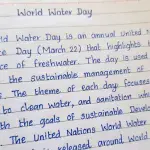 World Water Day
ld Water Day is an annual united
ce Day (March 22) that highlights
ce of freshwater. The day is used
the sustainable management of
s. The theme of each day focuses
to clean water, and sanitation wh
ith the goals of sustainable Devel
The United Nations World Water
released around World